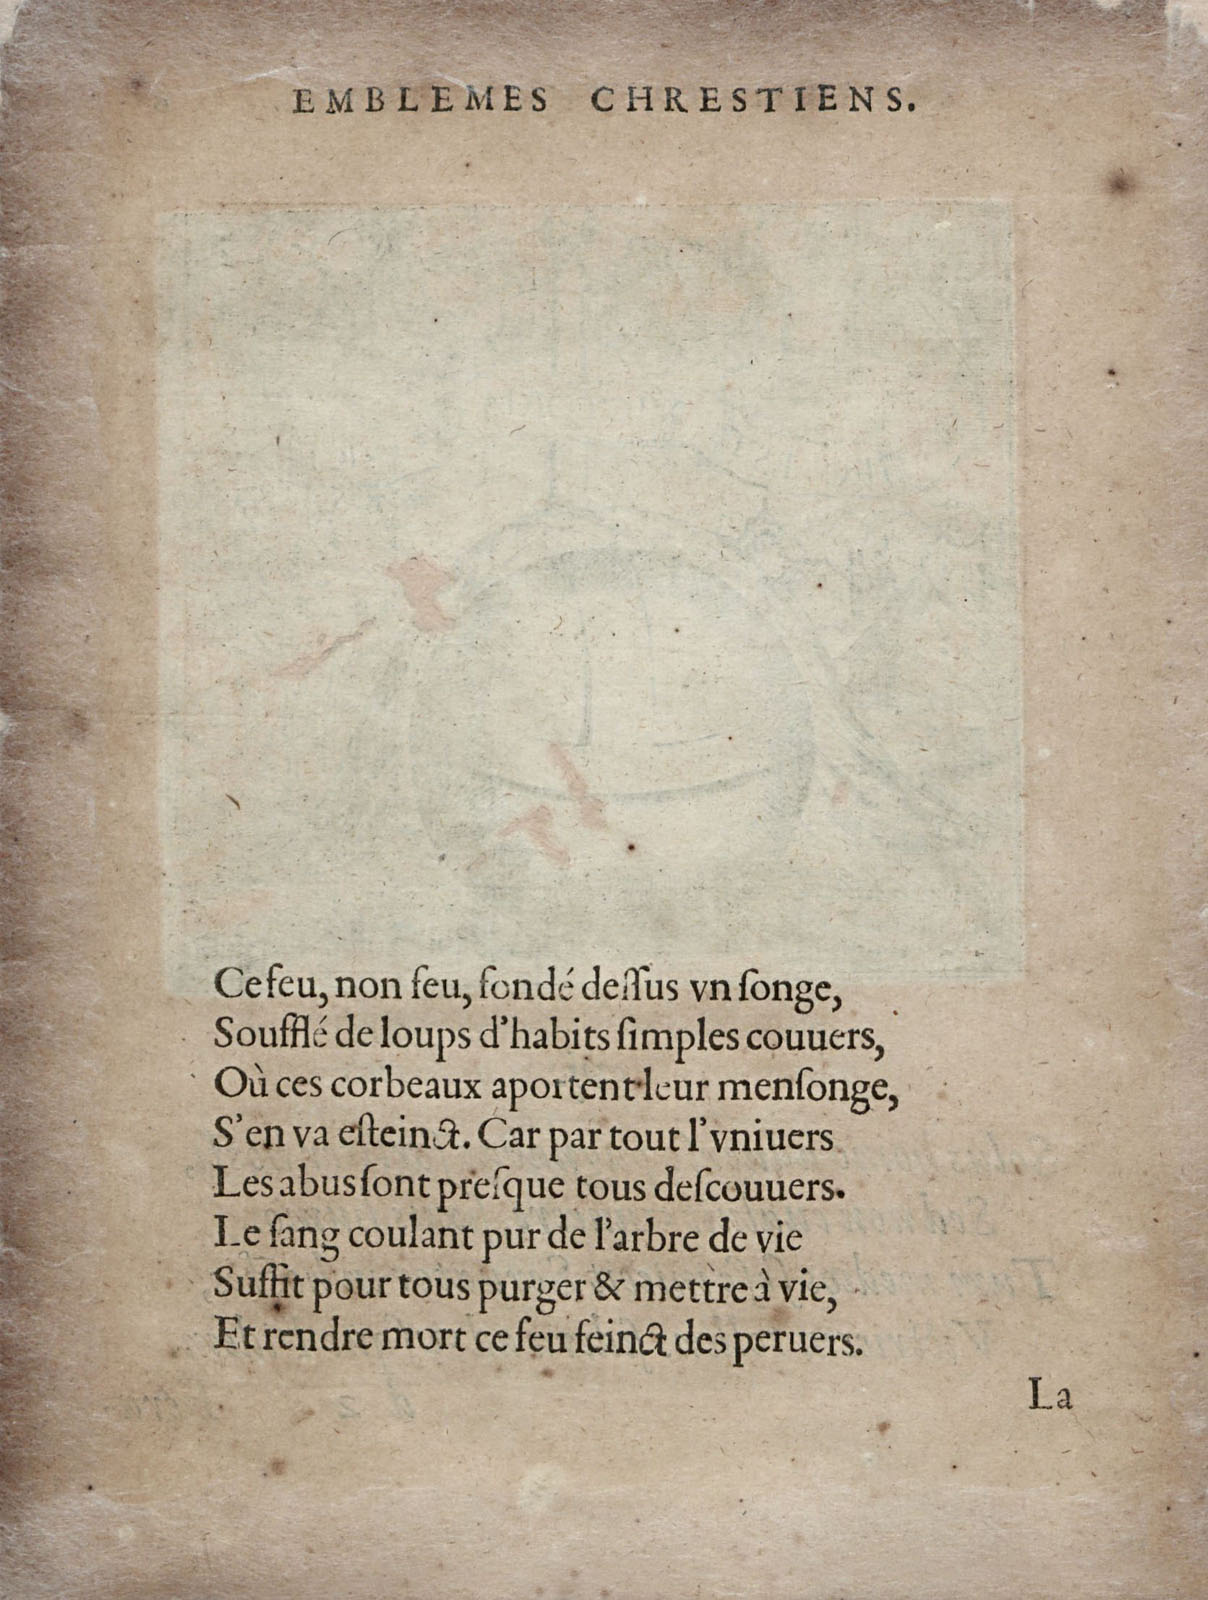 EMBLEMES CHRESTIENS.
Ce feu, non feu, fondé deſſus vn ſonge,
Soufflé de loups d'habits ſimples couuers,
Où ces corbeaux aportent leur menſonge,
S'en va eſteinct. Car par tout l'vniuers
Les abus ſont preſque tous deſcouuers.
Le ſang coulant pur de l'arbre de vie
Suffit pour tous purger & mettre à vie,
Et rendre mort ce feu feinct des peruers.
La